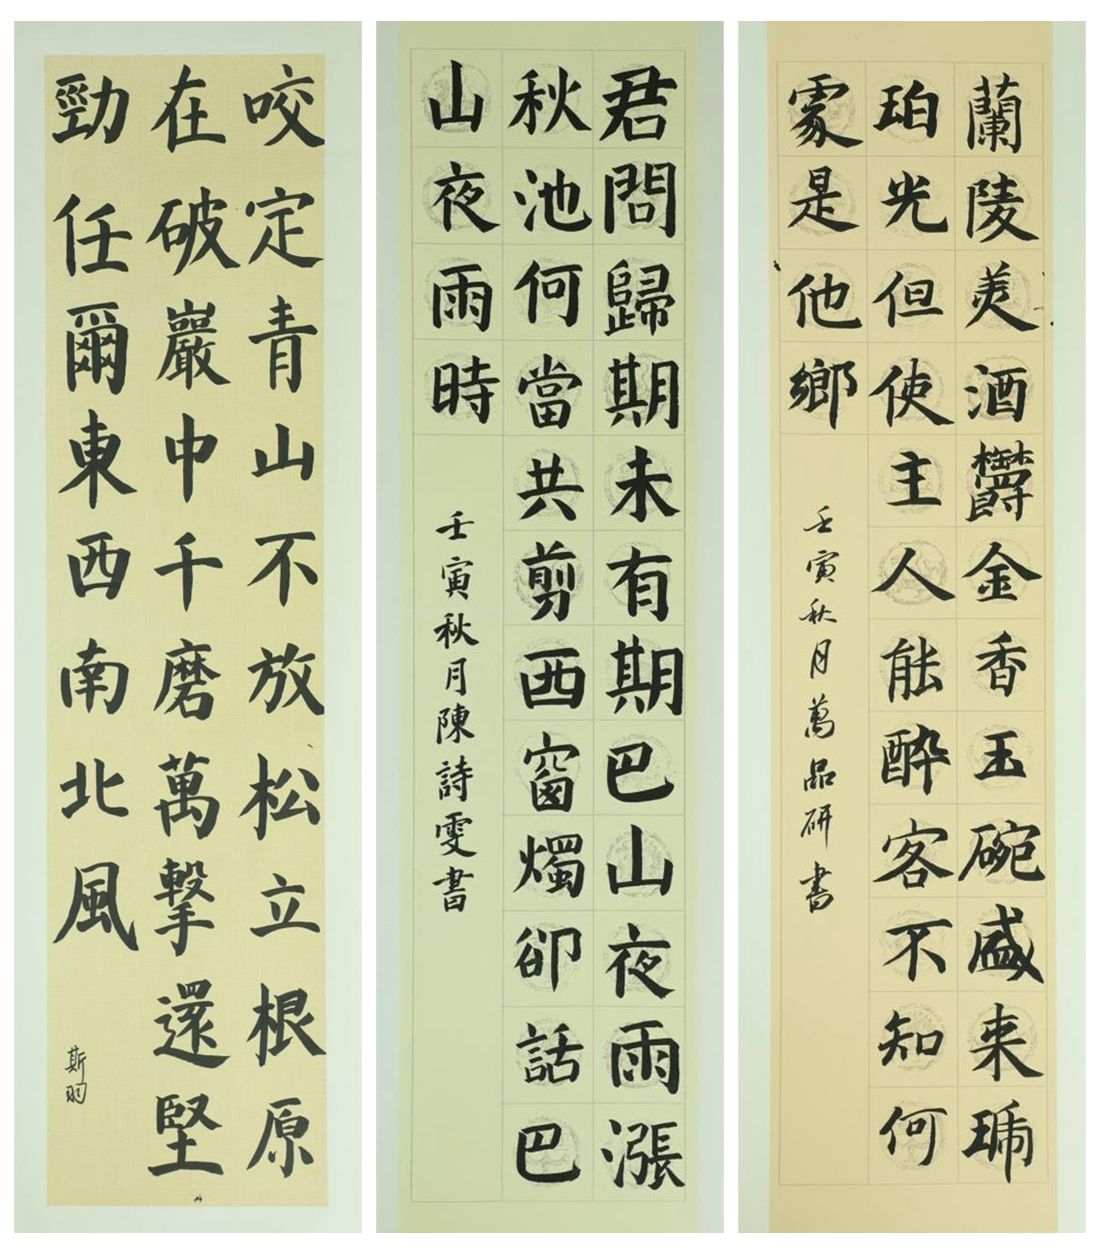 咬定青山不放松立根原
在破巖中千磨萬擊還堅
勁任爾東西南北風
斯羽
君問歸期未有期巴山夜雨漲
秋池何當共剪西窗燭卻話巴
山夜雨時
壬寅秋月陳詩雯書
蘭陵美酒欝金香玉碗盛来琥
珀光但使主人能醉客不知何
處是他鄉
壬寅秋月萬品研書